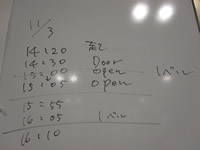 11/3
14:20
14:30 Door
15:00 open 1ベル
15:05 open
15:55
16:05 1ベル
16:10